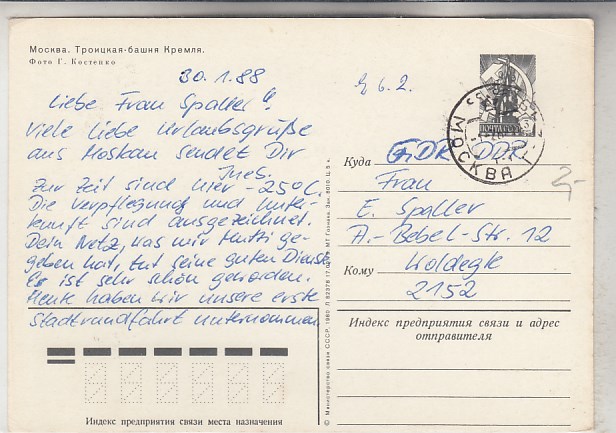 Москва. Троицкая башня Кремля.
Фото Г. Костенко
30.1.88
Liebe Frau Spaller!
Viele liebe Urlaubsgrüße
aus Moskau sendet Dir
Ines.
Zur Zeit sind hier -25°C.
Die Verpflegung und Unter-
kunft sind ausgezeichnet.
Dein Netz, das mir Mutti ge-
geben hat, tut seine guten Dienste.
Es ist sehr schön geworden.
Heute haben wir unsere erste
Stadtrundfahrt unternommen
Индекс предприятия связи места назначения
© Министерство связи СССР. 1980
6.2.
ПОЧТА СССР
МОСКВА
Куда GDR DDR
Frau
E. Spaller
A.-Bebel-Str. 12
Кому Woldegk
2152
Индекс предприятия связи и адрес
отправителя